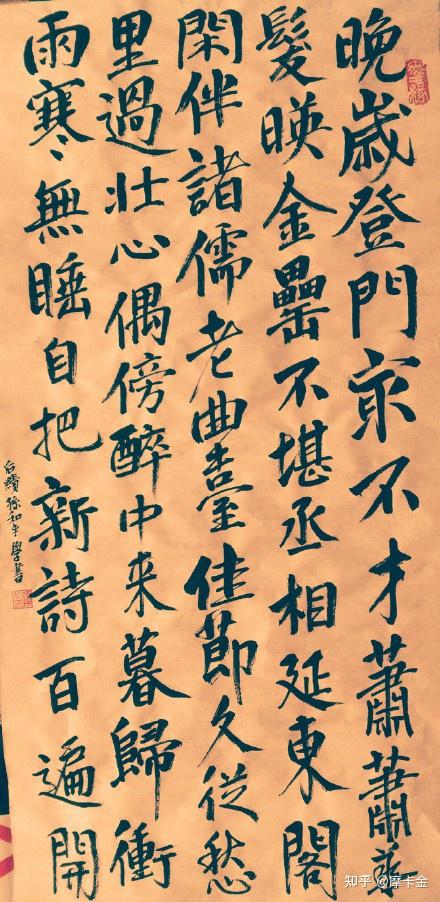 晚歲登門冣不才蕭蕭華
髮暎金罍不堪丞相延東閣
閑伴諸儒老曲臺佳節久從愁
里過壯心偶傍醉中来暮歸衝
雨寒無睡自把新詩百遍開
孫和平學書
知乎 @摩卡金